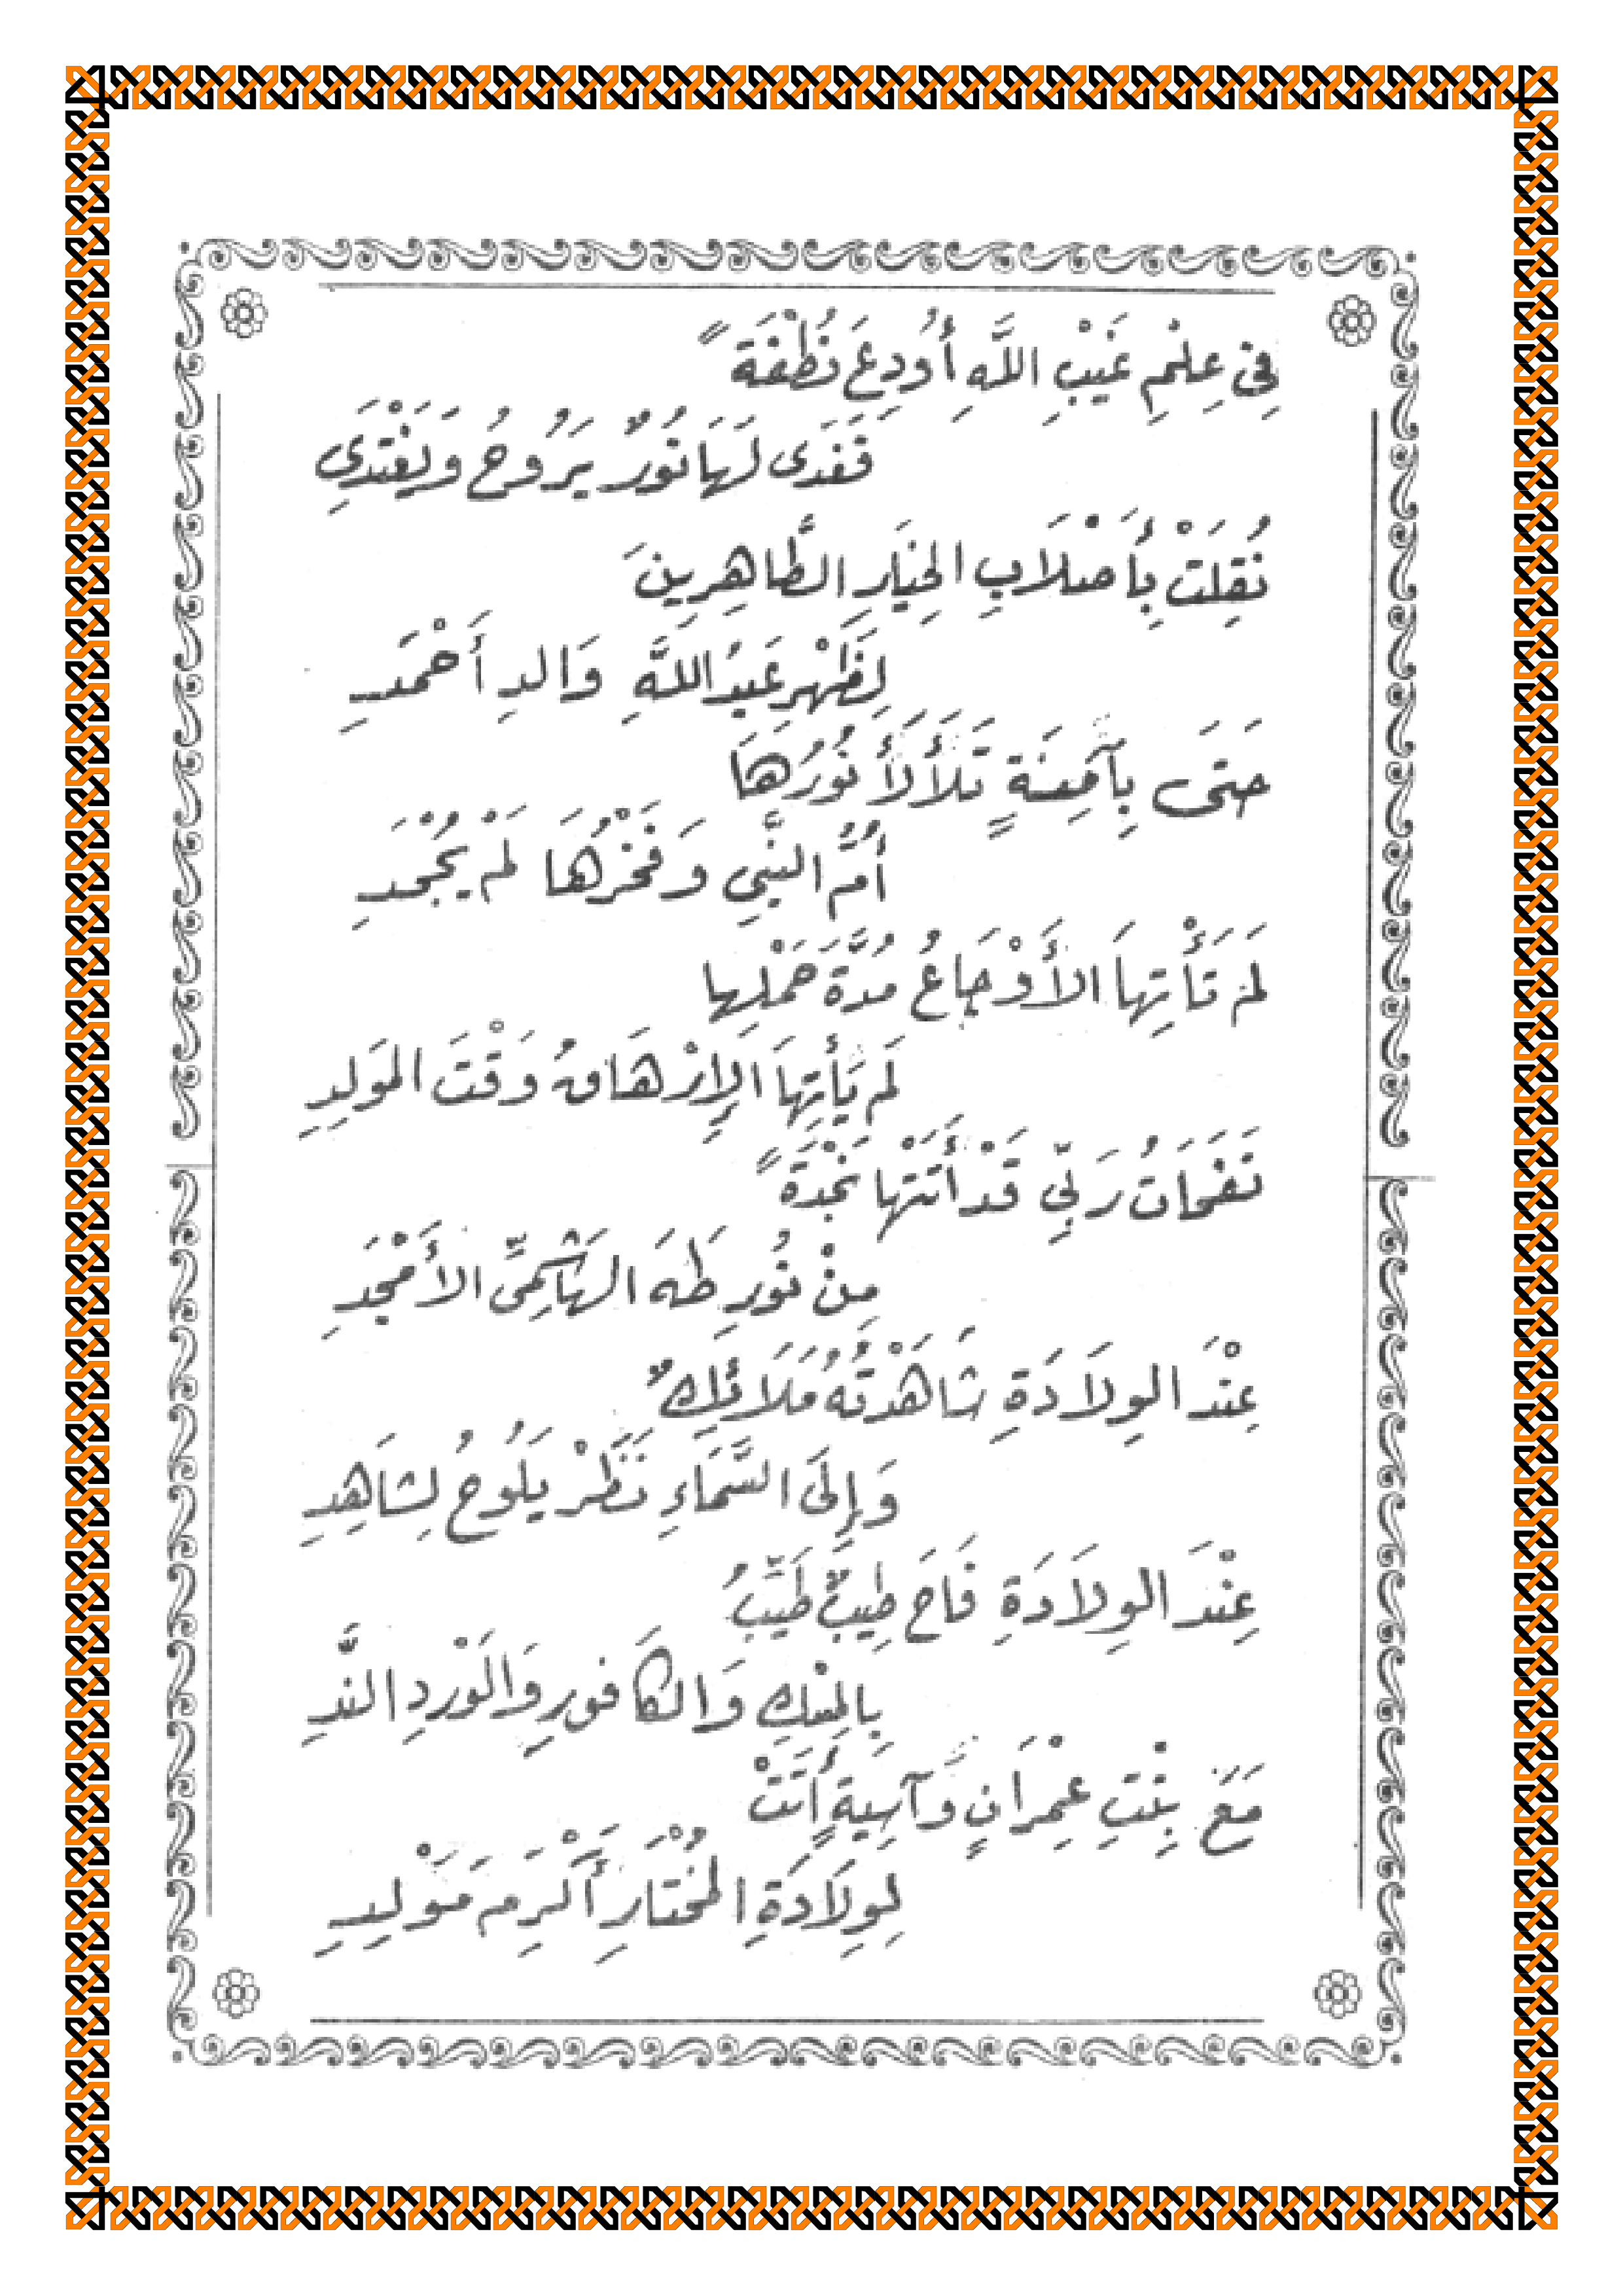 فِي عِلْمِ غَيْبِ اللَّهِ أُودِعَ نُطْفَةً
فَغَدَى لَهَا نُورٌ يَرُوحُ وَيَغْتَدِي
نُقِلَتْ بِأَصْلَابِ الخِيَارِ الطَّاهِرِينَ
لِظَهْرِ عَبْدُ اللَّهِ وَالدِ أَحْمَدِ
حَتَى بِآمِنَةٍ تَلَأْلَأَ نُورُهَا
أُمُّ النَّبِي وَفَخْرُهَا لَمْ يُجْحَدِ
لَمْ تَأْتِهَا الأَوْجَاعُ مُدَّةَ حَمْلِها
لَم يَأْتِهَا الإِرْهَاقُ وَقْتَ المَولِدِ
نَفَحَاتُ رَبِّي قَدْ أَتَتْهَا نَجْدَةً
مِنْ نُورِ طَهَ الهَاشِمِيِّ الأَمْجَدِ
عِنْدَ الوِلَادَةِ شَاهَدْتُهُ مَلَائِكٌ
وَإِلَى السَّمَاءِ نَظَرْ يَلُوحُ لِشَاهِدِ
عِنْدَ الوِلَادَةِ فَاحَ طِيبٌ طَيِّبُ
بِالمِسْكِ وَالكَافورِ وَالَوْردِ النَّدِ
مَعَ بِنْتِ عِمْرَانٍ وَآسِيةٍ أَتَتْ
لِوِلَادَةِ المُخْتَارِ أَكْرَمِ مَوْلِدِ